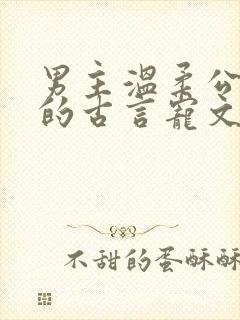 男主温柔公
的古言宠文
不甜的蛋酥酥